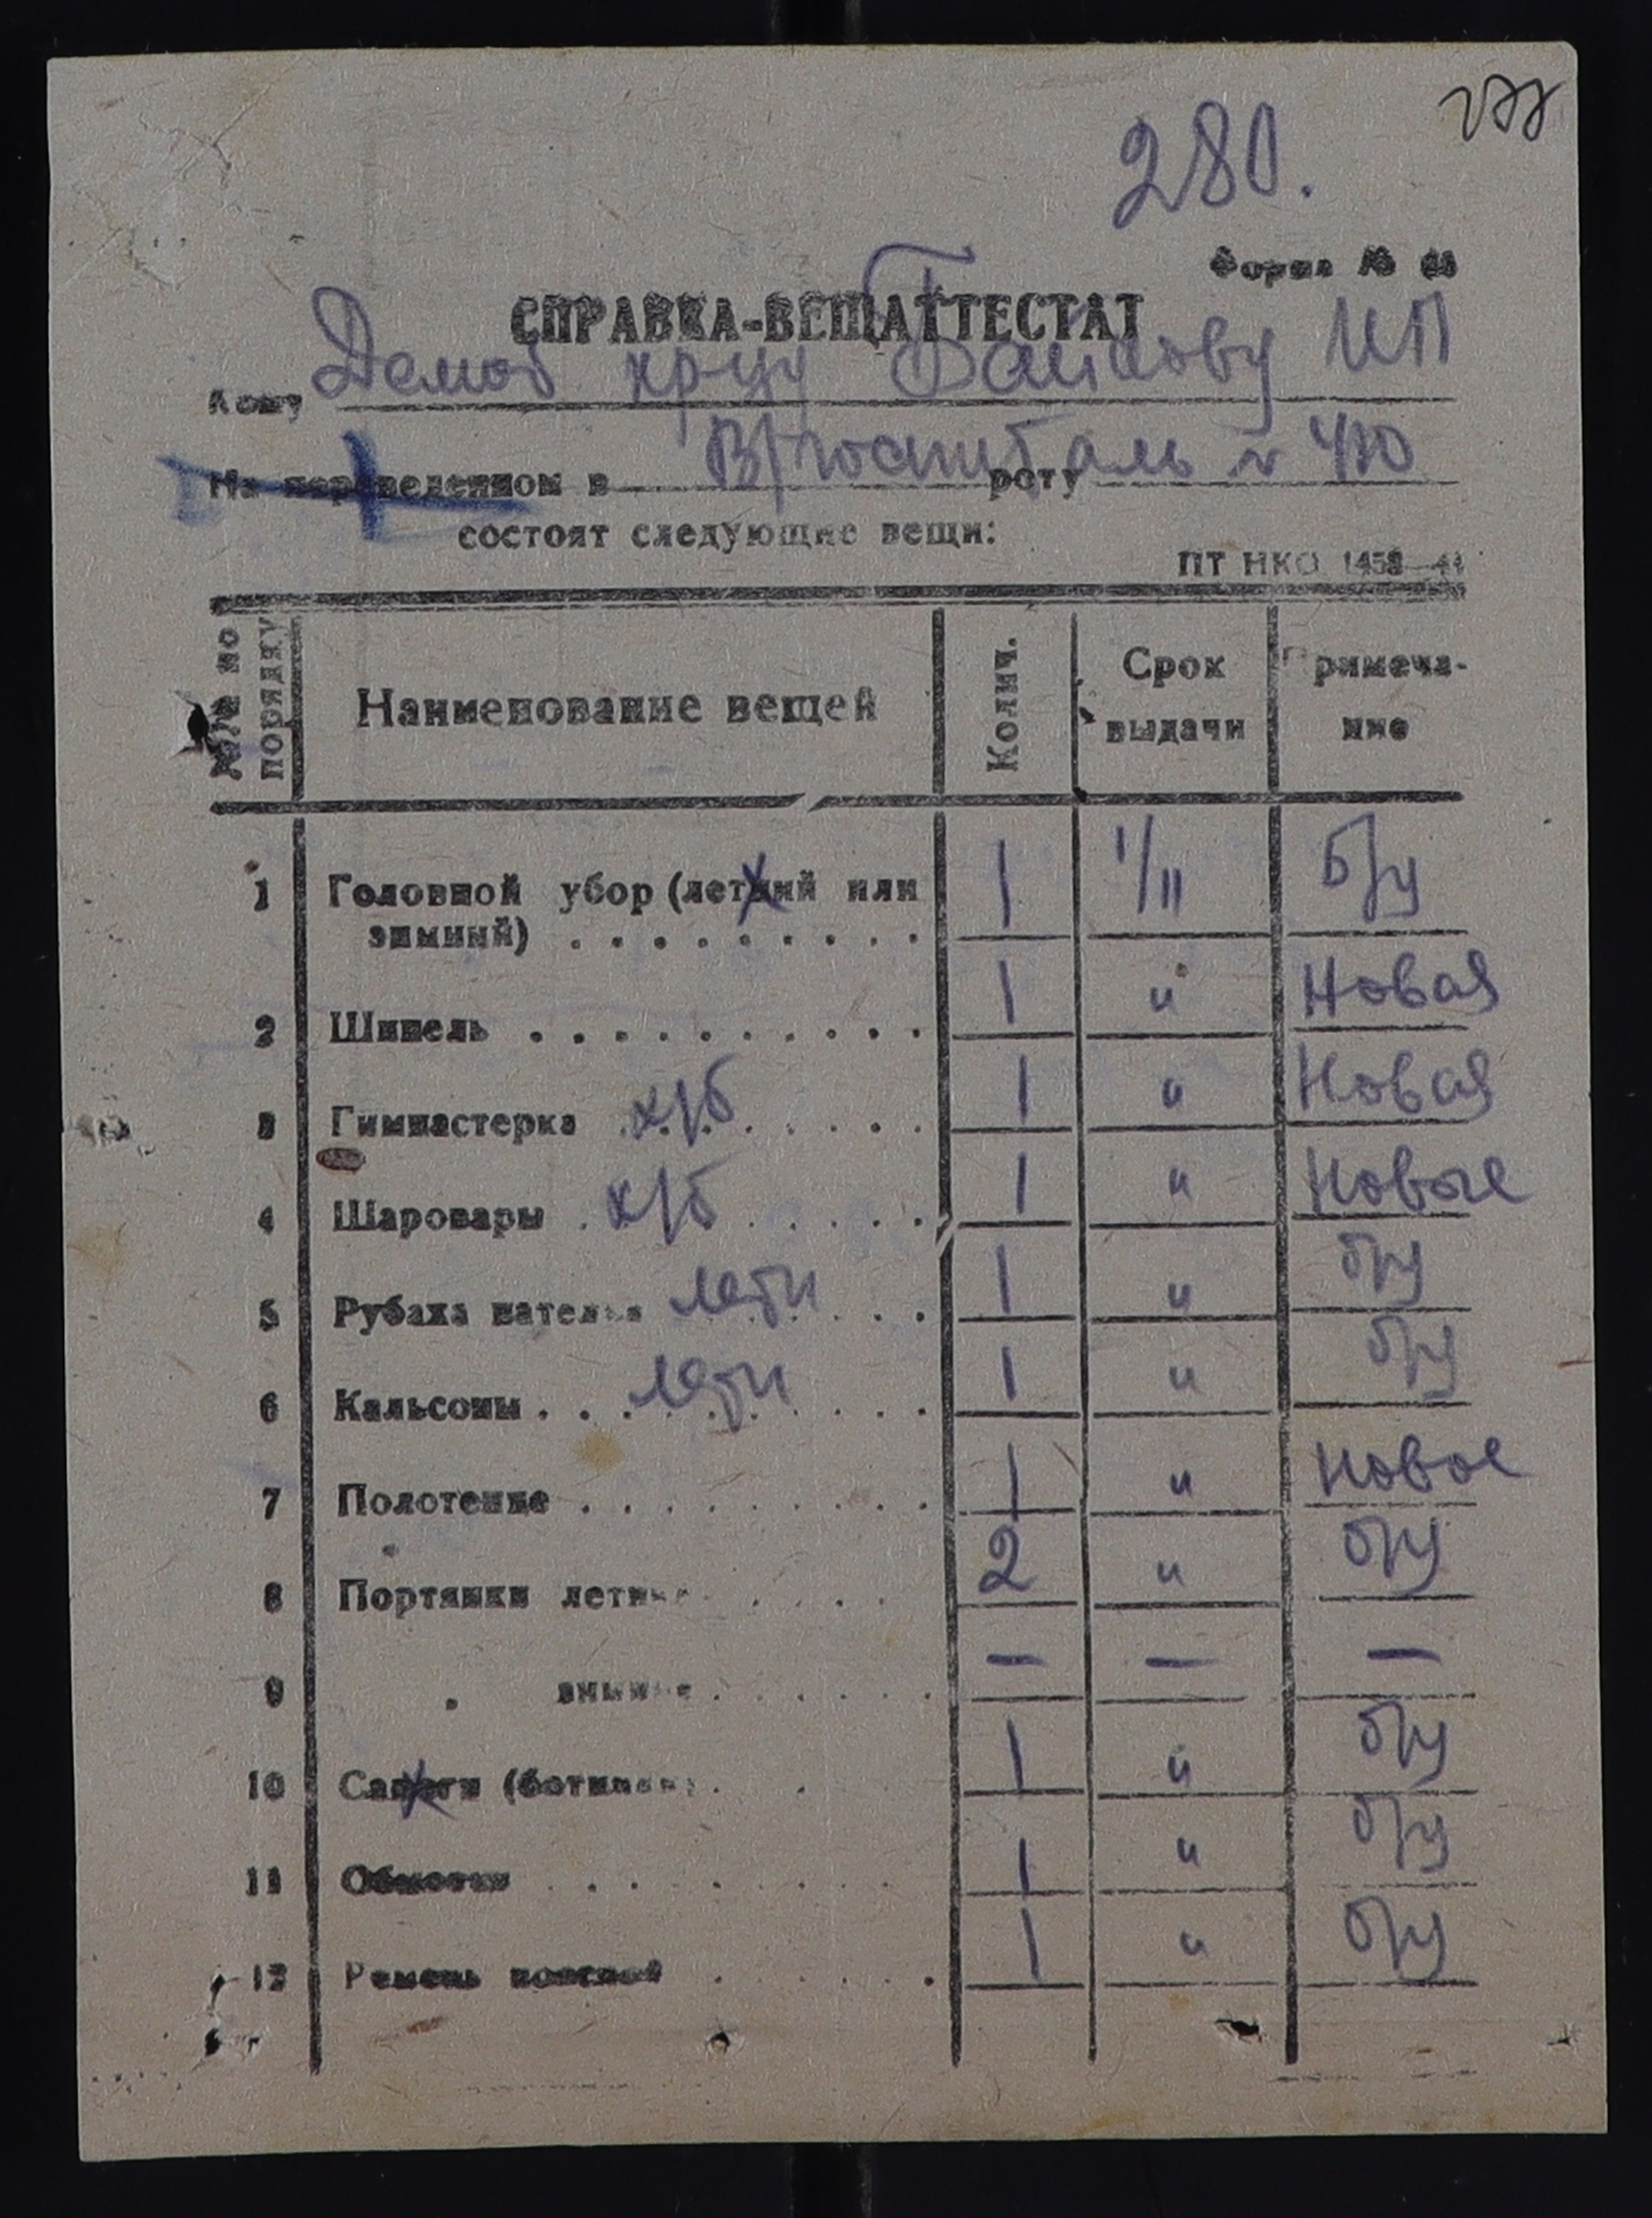 280.
Форма №
СПРАВКА-ВЕЩАТТЕСТАТ
Кому Демоб И П
На переведенном в В/госпиталь роту
состоят следующие вещи:
ПТ НКО
№№ по порядку Наименование вещей Колич. Срок выдачи Примечание
1 Головной убор (летний или зимний) 1 1/II Б/у
2 Шинель 1 " Новая
3 Гимнастерка х/б 1 " Новая
4 Шаровары х/б 1 " Новые
5 Рубаха нательн летн 1 " б/у
6 Кальсоны летн 1 " б/у
7 Полотенце 1 " новое
8 Портянки летние 2 " б/у
9 " зимние — — —
10 Сапоги (ботинки) 1 " б/у
11 Обмотки 1 " б/у
12 Ремень поясной 1 " б/у